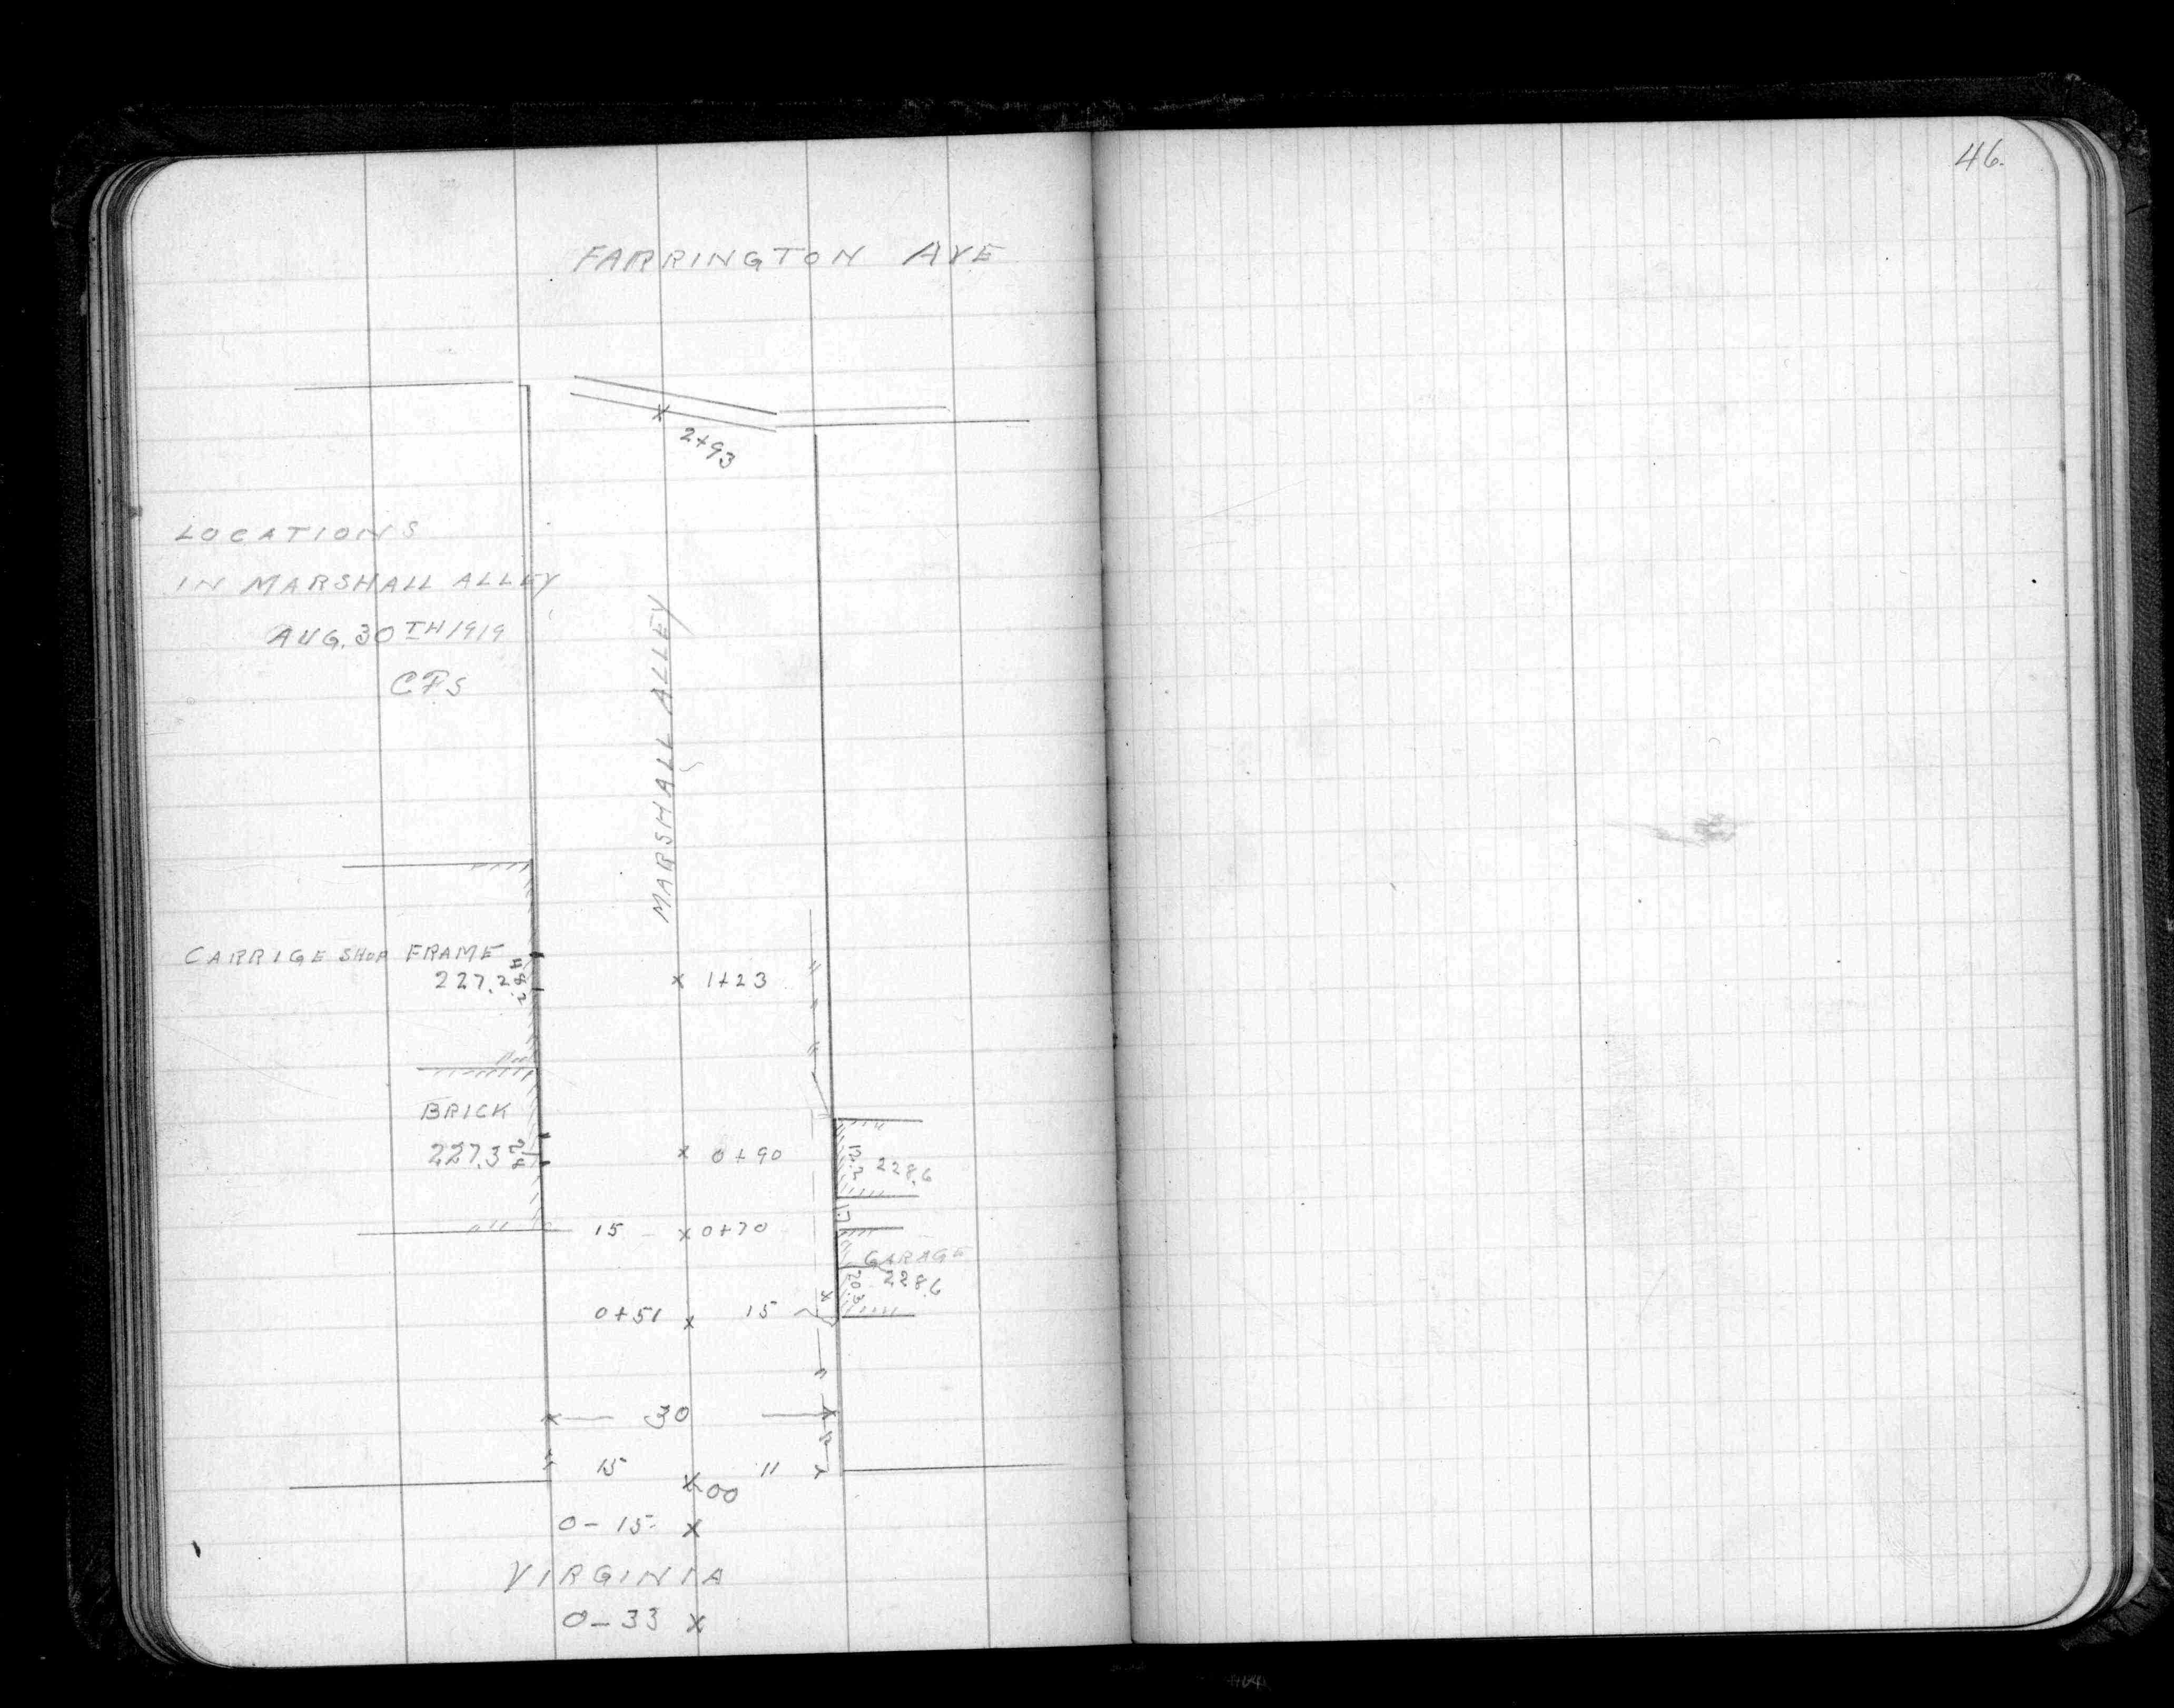 46.
FARRINGTON AVE
2+93
LOCATIONS
IN MARSHALL ALLEY
AUG. 30TH 1919
CFS
MARSHALL ALLEY
CARRIGE SHOP FRAME
227.2
1+23
BRICK
227.3
0+90
228.6
15 0+70
GARAGE
228.6
20.3
0+51 15
30
15 11
00
0-15
VIRGINIA
0-33